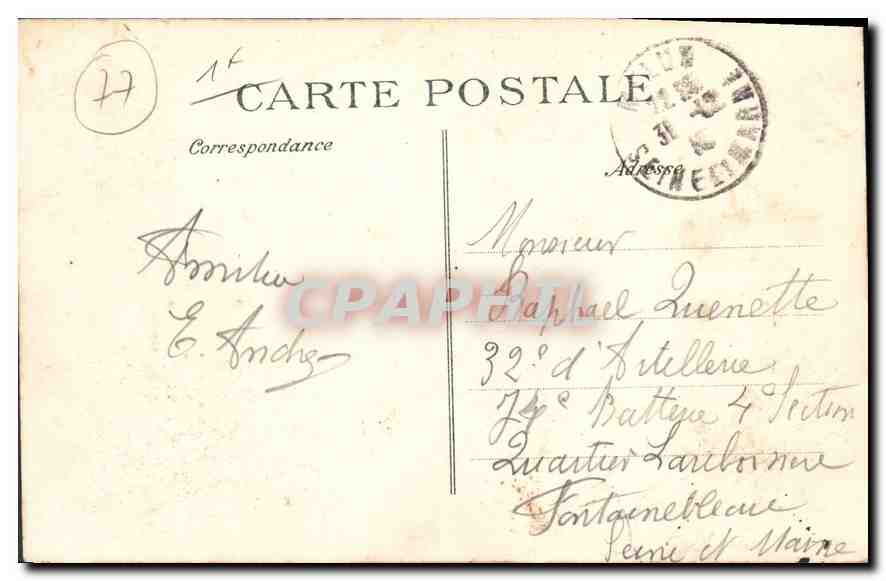 77
1f
CARTE POSTALE
Correspondance
Adresse
31
SEINE ET MARNE
E. André
Monsieur
Raphael Quenette
32e d'Artillerie
74e Batterie 4e Section
Quartier Lariboisière
Fontainebleau
Seine et Marne
CPAPHIL